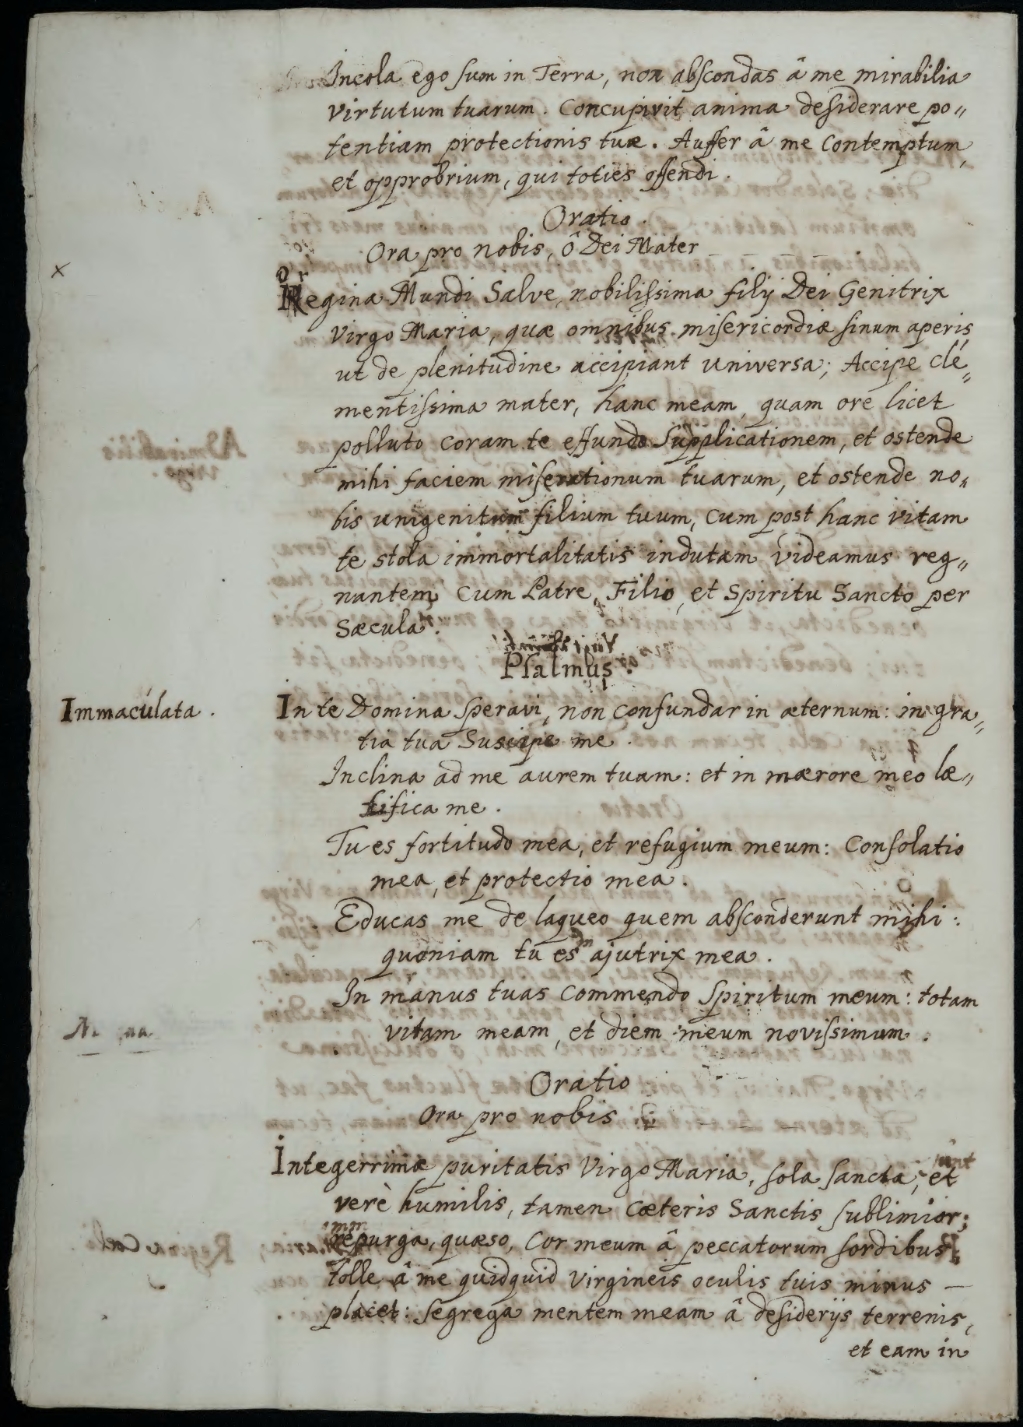 Incola ego sum in Terra, non abscondas â me mirabilia
virtutum tuarum. Concupivit anima desiderare po„
tentiam protectionis tuæ. Auffer â me Contemptum,
et opprobrium, qui toties offendi.
Oratio.
Ora pro nobis, ô Dei Mater
Regina Mundi Salve, nobilissima filij Dei Genitrix
Virgo Maria, quæ omnibus misericordiæ sinum aperis,
ut de plenitudine accipiant universa; Accipe cle„
mentissima mater, hanc meam, quam ore licet
polluto coram te effundo supplicationem, et ostende
mihi faciem miserationum tuarum, et ostende no„
bis unigenitum filium tuum, cum post hanc vitam
te stola immortalitatis indutam videamus reg„
nantem Cum Patre, Filio, et Spiritu Sancto per
Sæcula.
Psalmus.
Immaculata.
In te Domina speravi, non confundar in æternum: in gra„
tia tua Suscipe me.
Inclina ad me aurem tuam: et in mærore meo læ„
tifica me.
Tu es fortitudo mea, et refugium meum: Consolatio
mea, et protectio mea.
Educas me de laqueo quem absconderunt mihi:
quoniam tu es ajutrix mea.
In manus tuas Commendo Spiritum meum: totam
vitam meam, et diem meum novissimum.
Oratio
Ora pro nobis
Integerrimæ puritatis Virgo Maria, sola sancta, et
verè humilis, tamen Cæteris Sanctis sublimior;
repurga, quæso, Cor meum â peccatorum sordibus,
tolle â me quidquid Virgineis oculis tuis minus
placet: segrega mentem meam â desiderijs terrenis,
et eam in